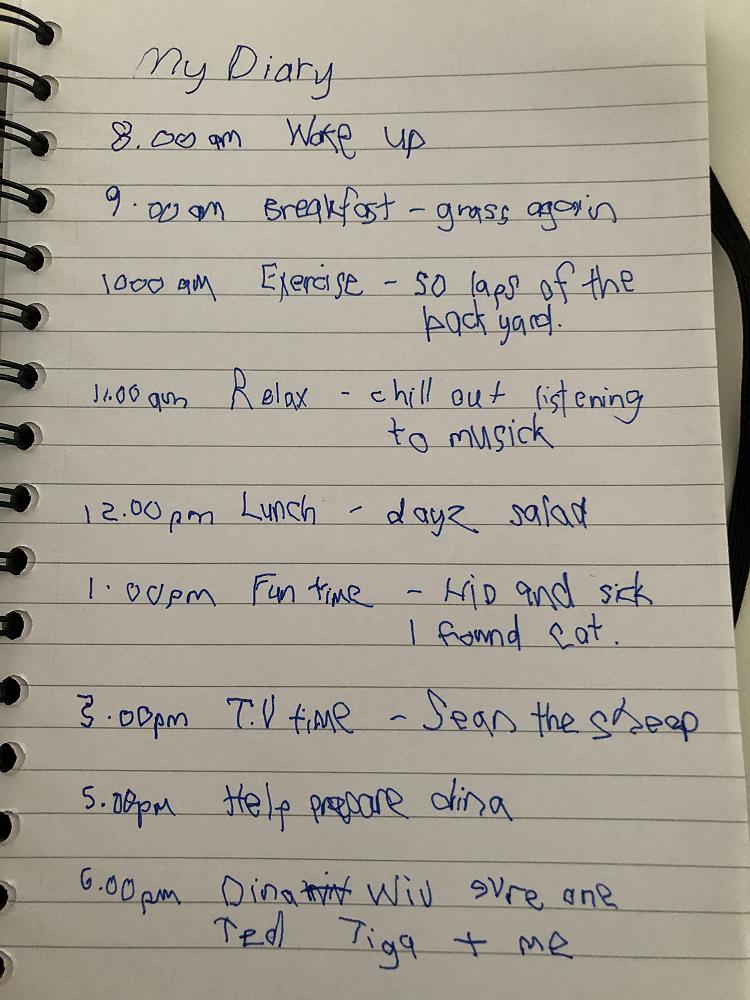 My Diary
8.00 am Woke up
9.00 am Breakfast - grass again
1000 am Exercise - 50 laps of the
back yard.
11.00 am Relax - chill out listening
to musick
12.00 pm Lunch - dayz salad
1.00pm Fun time - Hid and sick
I found cat.
3.00pm T.V time - Sean the sheep
5.00pm Help prepare dina
6.00pm Dina wiv evre one
Ted Tiga + me